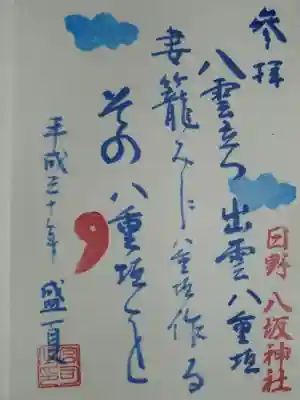 參拝
八雲立つ出雲八重垣
妻籠みに八重垣作る
その八重垣を
平成三十年 盛夏
日野八坂神社